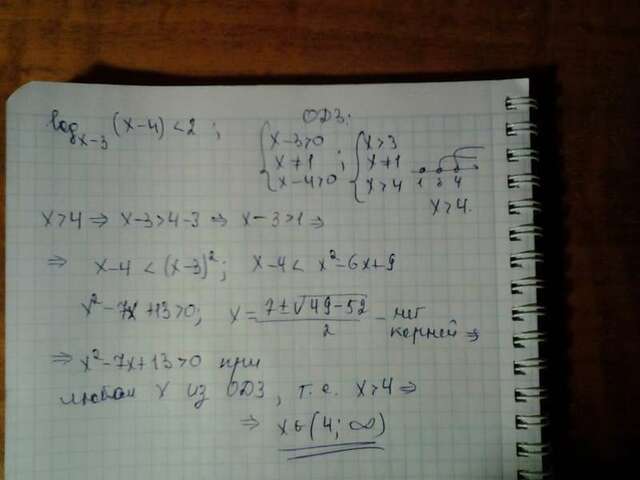 log x-3 (x-4) < 2 ; ОДЗ:
{ x-3>0 ; { x>3
x≠1 x≠1
x-4>0 x>4 1 3 4
x>4 ⇒ x-3>4-3 ⇒ x-3>1 ⇒ x>4.
⇒ x-4 < (x-3)²; x-4 < x²-6x+9
x²-7x+13>0; x = (7±√49-52)/2 - нет корней ⇒
⇒ x²-7x+13>0 при
любом x из ОДЗ, т.е. x>4 ⇒
⇒ x∈(4; ∞)